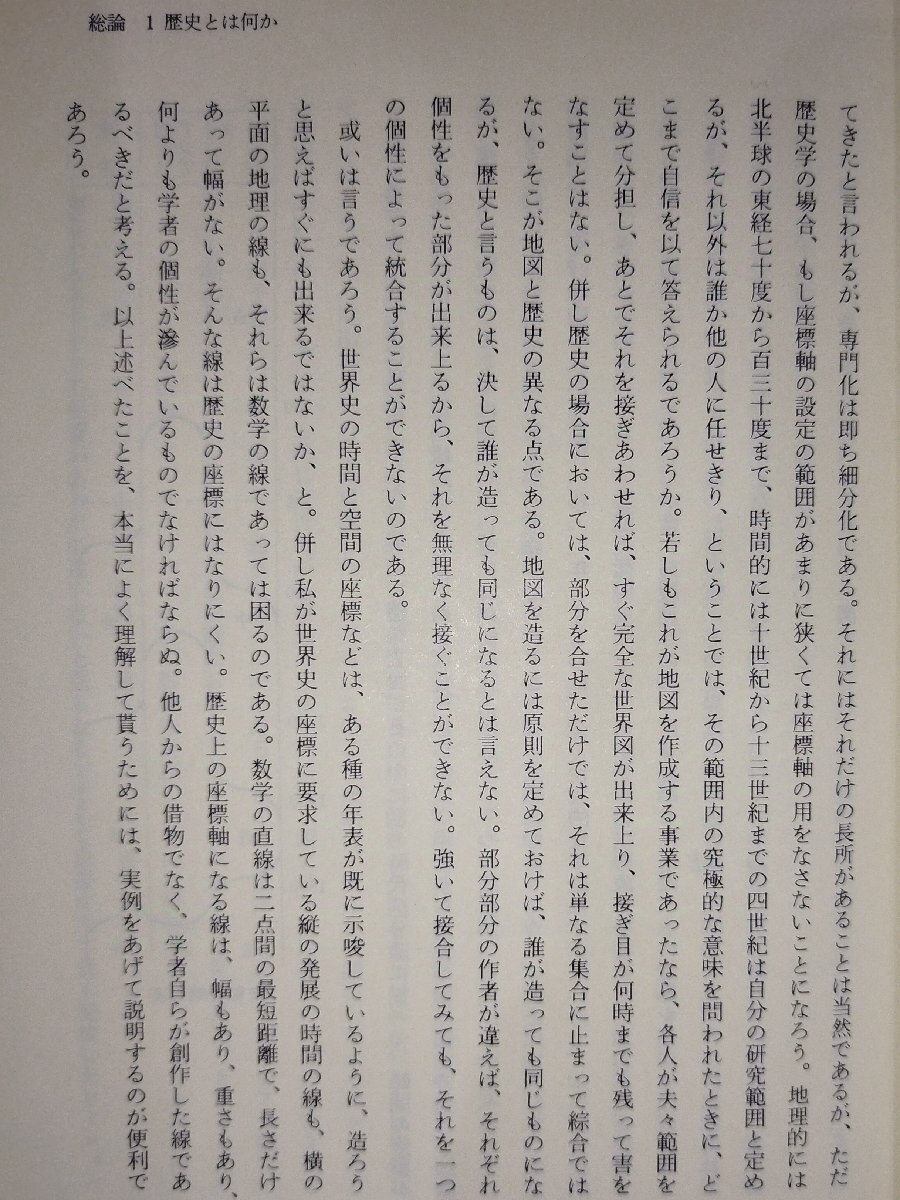 総論　1 歴史とは何か
てきたと言われるが、専門化は即ち細分化である。それにはそれだけの長所があることは当然であるが、ただ
歴史学の場合、もし座標軸の設定の範囲があまりに狭くては座標軸の用をなさないことになろう。地理的には
北半球の東経七十度から百三十度まで、時間的には十世紀から十三世紀までの四世紀は自分の研究範囲と定め
るが、それ以外は誰か他の人に任せきり、ということでは、その範囲内の究極的な意味を問われたときに、ど
こまで自信を以て答えられるであろうか。若しもこれが地図を作成する事業であったなら、各人が夫々範囲を
定めて分担し、あとでそれを接ぎあわせれば、すぐ完全な世界図が出来上り、接ぎ目が何時までも残って害を
なすことはない。併し歴史の場合においては、部分を合せただけでは、それは単なる集合に止まって綜合では
ない。そこが地図と歴史の異なる点である。地図を造るには原則を定めておけば、誰が造っても同じものにな
るが、歴史と言うものは、決して誰が造っても同じになるとは言えない。部分部分の作者が違えば、それぞれ
個性をもった部分が出来上るから、それを無理なく接ぐことができない。強いて接合してみても、それを一つ
の個性によって統合することができないのである。
或いは言うであろう。世界史の時間と空間の座標などは、ある種の年表が既に示唆しているように、造ろう
と思えばすぐにも出来るではないか、と。併し私が世界史の座標に要求している縦の発展の時間の線も、横の
平面の地理の線も、それらは数学の線であっては困るのである。数学の直線は二点間の最短距離で、長さだけ
あって幅がない。そんな線は歴史の座標にはなりにくい。歴史上の座標軸になる線は、幅もあり、重さもあり、
何よりも学者の個性が滲んでいるものでなければならぬ。他人からの借物でなく、学者自らが創作した線であ
るべきだと考える。以上述べたことを、本当によく理解して貰うためには、実例をあげて説明するのが便利で
あろう。